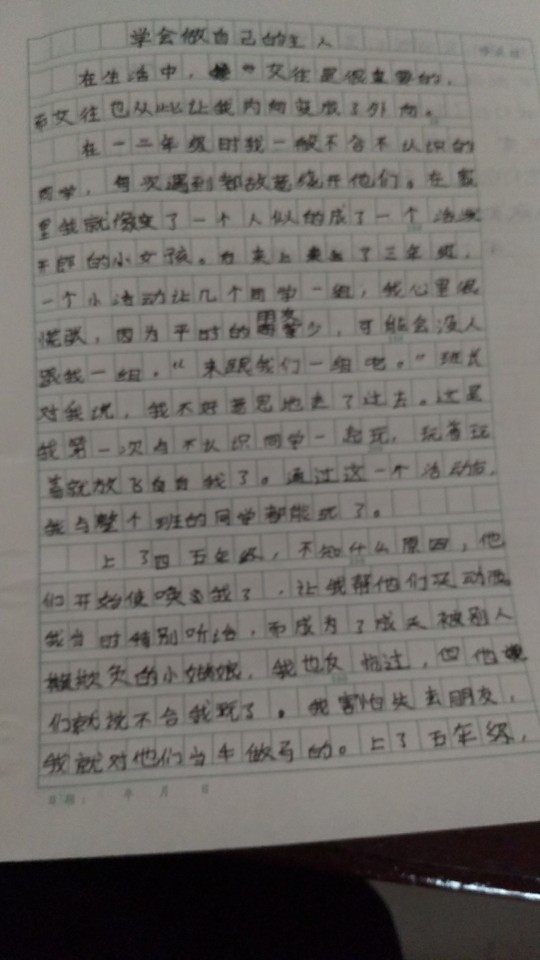 学会做自己的主人
在生活中，交往是很重要的，
而交往也从此让我内向变成了外向。
在一二年级时我一般不合不认识的
同学，每次遇到都故意绕开他们。在家
里我就像变了一个人似的成了一个活泼
开朗的小女孩。后来上了三年级，
一个小活动让几个同学一组，我心里很
慌张，因为平时的朋友少，可能会没人
跟我一组，“来跟我们一组吧。”班长
对我说，我不好意思地走了过去。这是
我第一次与不认识同学一起玩，玩着玩
着就放飞自我了。通过这一个活动后，
我与整个班的同学都能玩了。
上了四五年级，不知什么原因，他
们开始使唤我了，让我帮他们
我当时特别听话，而成为了成天被别人
欺负的小姑娘，我也反抗过，但他
们就说不合我玩了。我害怕失去朋友，
我就对他们当牛做马的。上了五年级，
日期： 年 月 日